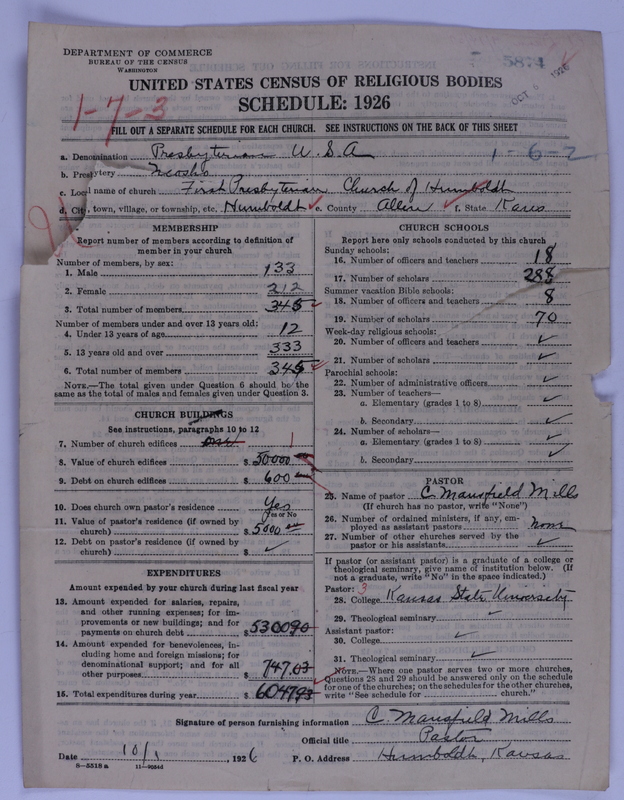 DEPARTMENT OF COMMERCE
BUREAU OF THE CENSUS
WASHINGTON
5874
OCT 6 1926
UNITED STATES CENSUS OF RELIGIOUS BODIES
SCHEDULE: 1926
1-7-3
FILL OUT A SEPARATE SCHEDULE FOR EACH CHURCH. SEE INSTRUCTIONS ON THE BACK OF THIS SHEET
a. Denomination Presbyterian U.S.A 1-6-2
b. Presbytery Neosho
c. Local name of church First Presbyterian Church of Humboldt
d. City, town, village, or township, etc. Humboldt e. County Allen f. State Kans
MEMBERSHIP
Report number of members according to definition of
member in your church
Number of members, by sex:
1. Male 133
2. Female 212
3. Total number of members 345
Number of members under and over 13 years old:
4. Under 13 years of age 12
5. 13 years old and over 333
6. Total number of members 345
NOTE.—The total given under Question 6 should be the
same as the total of males and females given under Question 3.
CHURCH BUILDINGS
See instructions, paragraphs 10 to 12
7. Number of church edifices one 1
8. Value of church edifices $ 50000
9. Debt on church edifices $ 600
10. Does church own pastor's residence Yes
Yes or No
11. Value of pastor's residence (if owned by
church) $ 5000
12. Debt on pastor's residence (if owned by
church) $ ✓
EXPENDITURES
Amount expended by your church during last fiscal year
13. Amount expended for salaries, repairs,
and other running expenses; for im-
provements or new buildings; and for
payments on church debt $ 530090
14. Amount expended for benevolences, in-
cluding home and foreign missions; for
denominational support; and for all
other purposes $ 747.03
15. Total expenditures during year $ 604793
CHURCH SCHOOLS
Report here only schools conducted by this church
Sunday schools:
16. Number of officers and teachers 18
17. Number of scholars 288
Summer vacation Bible schools:
18. Number of officers and teachers 8
19. Number of scholars 70
Week-day religious schools:
20. Number of officers and teachers ✓
21. Number of scholars ✓
Parochial schools:
22. Number of administrative officers ✓
23. Number of teachers—
a. Elementary (grades 1 to 8) ✓
b. Secondary ✓
24. Number of scholars—
a. Elementary (grades 1 to 8) ✓
b. Secondary ✓
PASTOR
25. Name of pastor C. Mansfield Mills
(If church has no pastor, write "None")
26. Number of ordained ministers, if any, em-
ployed as assistant pastors none
27. Number of other churches served by the
pastor or his assistants ✓
If pastor (or assistant pastor) is a graduate of a college or
theological seminary, give name of institution below. (If
not a graduate, write "No" in the space indicated.)
Pastor: 3
28. College Kansas State University
29. Theological seminary ✓
Assistant pastor:
30. College ✓
31. Theological seminary ✓
NOTE.—Where one pastor serves two or more churches,
Questions 28 and 29 should be answered only on the schedule
for one of the churches; on the schedules for the other churches,
write "See schedule for church."
Signature of person furnishing information C. Mansfield Mills
Official title Pastor
Date 10/1, 1926 P. O. Address Humboldt, Kansas
8—5518 a